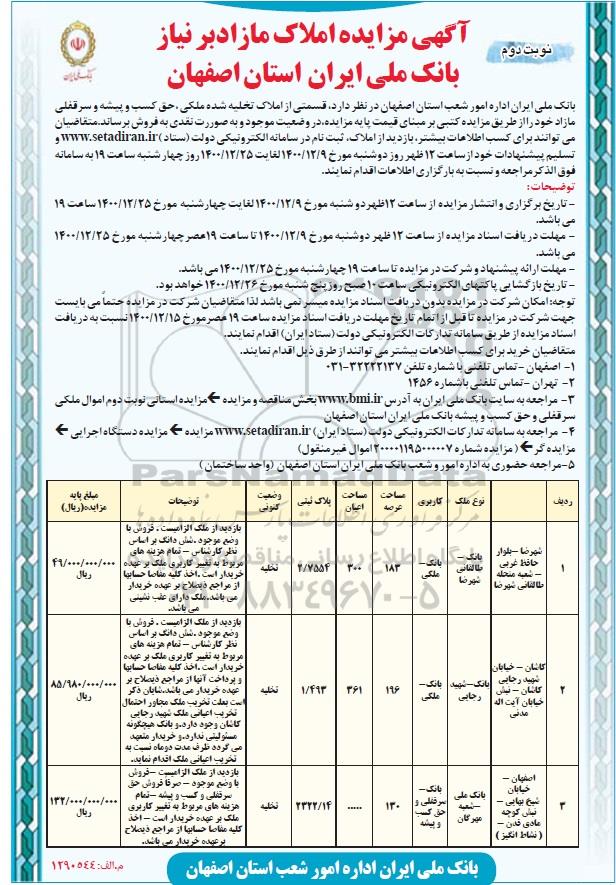 آگهی مزایده املاک مازادبر نیاز
بانک ملی ایران استان اصفهان
نوبت دوم
بانک ملی ایران
بانک ملی ایران اداره امور شعب استان اصفهان در نظر دارد، قسمتی از املاک تخلیه شده ملکی ،حق کسب و پیشه و سرقفلی
مازاد خود را از طریق مزایده کتبی بر مبنای قیمت پایه مزایده،در وضعیت موجود و به صورت نقدی به فروش برساند.متقاضیان
می توانند برای کسب اطلاعات بیشتر، بازدید از املاک، ثبت نام در سامانه الکترونیکی دولت (ستاد) www.setadiran.ir و
تسلیم پیشنهادات خود از ساعت ۱۲ ظهر روز دوشنبه مورخ ۱۴۰۰/۱۲/۹ لغایت ۱۴۰۰/۱۲/۲۵ روز چهار شنبه ساعت ۱۹ به سامانه
فوق الذکر مراجعه و نسبت به بارگزاری اطلاعات اقدام نمایند.
توضیحات:
- تاریخ برگزاری و انتشار مزایده از ساعت ۱۲ظهر دو شنبه مورخ ۱۴۰۰/۱۲/۹ لغایت چهارشنبه مورخ ۱۴۰۰/۱۲/۲۵ ساعت ۱۹
می باشد.
- مهلت دریافت اسناد مزایده از ساعت ۱۲ ظهر دوشنبه مورخ ۱۴۰۰/۱۲/۹ تا ساعت ۱۹عصر چهارشنبه مورخ ۱۴۰۰/۱۲/۲۵
می باشد.
- مهلت ارائه پیشنهاد و شرکت در مزایده تا ساعت ۱۹ چهارشنبه مورخ ۱۴۰۰/۱۲/۲۵ می باشد.
- تاریخ بازگشایی پاکتهای الکترونیکی ساعت ۱۰صبح روز پنج شنبه مورخ ۱۴۰۰/۱۲/۲۶ خواهد بود.
توجه: امکان شرکت در مزایده بدون دریافت اسناد مزایده میسر نمی باشد لذا متقاضیان شرکت در مزایده حتماً می بایست
جهت شرکت در مزایده تا قبل از اتمام تاریخ مهلت دریافت اسناد مزایده ساعت ۱۹ عصر مورخ ۱۴۰۰/۱۲/۱۵ نسبت به دریافت
اسناد مزایده از طریق سامانه تدارکات الکترونیکی دولت (ستاد ایران) اقدام نمایند.
متقاضیان خرید برای کسب اطلاعات بیشتر می توانند از طرق ذیل اقدام نمایند.
۱- اصفهان -تماس تلفنی با شماره تلفن ۳۲۲۲۲۱۳۷-۰۳۱
۲- تهران -تماس تلفنی باشماره ۱۴۵۶
۳- مراجعه به سایت بانک ملی ایران به آدرس www.bmi.ir بخش مناقصه و مزایده ← مزایده استانی نوبت دوم اموال ملکی
سرقفلی و حق کسب و پیشه بانک ملی ایران استان اصفهان
۴- مراجعه به سامانه تدارکات الکترونیکی دولت (ستاد ایران) www.setadiran.ir مزایده ← مزایده دستگاه اجرایی ←
مزایده گر ← (مزایده شماره ۲۰۰۰۰۱۱۹۵۰۰۰۰۰۷ اموال غیر منقول)
۵-مراجعه حضوری به اداره امور و شعب بانک ملی ایران استان اصفهان (واحد ساختمان)
ردیف | | نوع ملک | کاربری | مساحت عرصه | مساحت اعیان | پلاک ثبتی | وضعیت کنونی | توضیحات | مبلغ پایه مزایده(ریال)
۱ | شهرضا -بلوار حافظ غربی – شعبه منحله طالقانی شهرضا | بانک – طالقانی شهرضا | بانک– ملکی | ۱۸۳ | ۳۰۰ | ۲/۷۵۵۴ | تخلیه | بازدید از ملک الزامیست . فروش با وضع موجود .شش دانگ بر اساس نظر کارشناس – تمام هزینه های مربوط به تغییر کاربری ملک بر عهده خریدار است .اخذ کلیه مفاصا حسابها از مراجع ذیصلاح بر عهده خریدار می باشد.ملک دارای عقب نشینی می باشد. | ۴۹/۰۰۰/۰۰۰/۰۰۰ ریال
۲ | کاشان - خیابان شهید رجایی کاشان – نبش خیابان آیت اله مدنی | بانک –شهید رجایی | بانک– ملکی | ۱۹۶ | ۳۶۱ | ۱/۴۹۳ | تخلیه | بازدید از ملک الزامیست . فروش با وضع موجود .شش دانگ بر اساس نظر کارشناس – تمام هزینه های مربوط به تغییر کاربری ملک بر عهده خریدار است .اخذ کلیه مفاصا حسابها و پرداخت آنها از مراجع ذیصلاح بر عهده خریدار می باشد.شایان ذکر است بعلت تخریب ملک مجاور احتمال تخریب اعیانی ملک شهید رجایی کاشان وجود دارد.و بانک هیچگونه مسئولیتی ندارد.و خریدار متعهد می گردد ظرف مدت دوماه نسبت به تخریب اعیانی ملک اقدام نماید. | ۸۵/۹۸۰/۰۰۰/۰۰۰ ریال
۳ | اصفهان – خیابان شیخ بهایی – نبش کوچه مادی فدن – (نشاط انگیز) | بانک ملی –شعبه مهرگان | بانک– سرقفلی و حق کسب و پیشه | ۱۳۰ | ..... | ۲۳۲۲/۱۴ | تخلیه | بازدید از ملک الزامیست –فروش با وضع موجود – صرفا فروش حق سرقفلی و کسب و پیشه –تمام هزینه های مربوط به تغییر کاربری ملک بر عهده خریدار است – اخذ کلیه مفاصا حسابها از مراجع ذیصلاح بر عهده خریدار می باشد. | ۱۳۲/۰۰۰/۰۰۰/۰۰۰ ریال
ParsNamadData
۰۲۱-۸۸۳۴۹۶۷۰-۵
بانک ملی ایران اداره امور شعب استان اصفهان
م.الف:۱۲۹۰۵۴۴